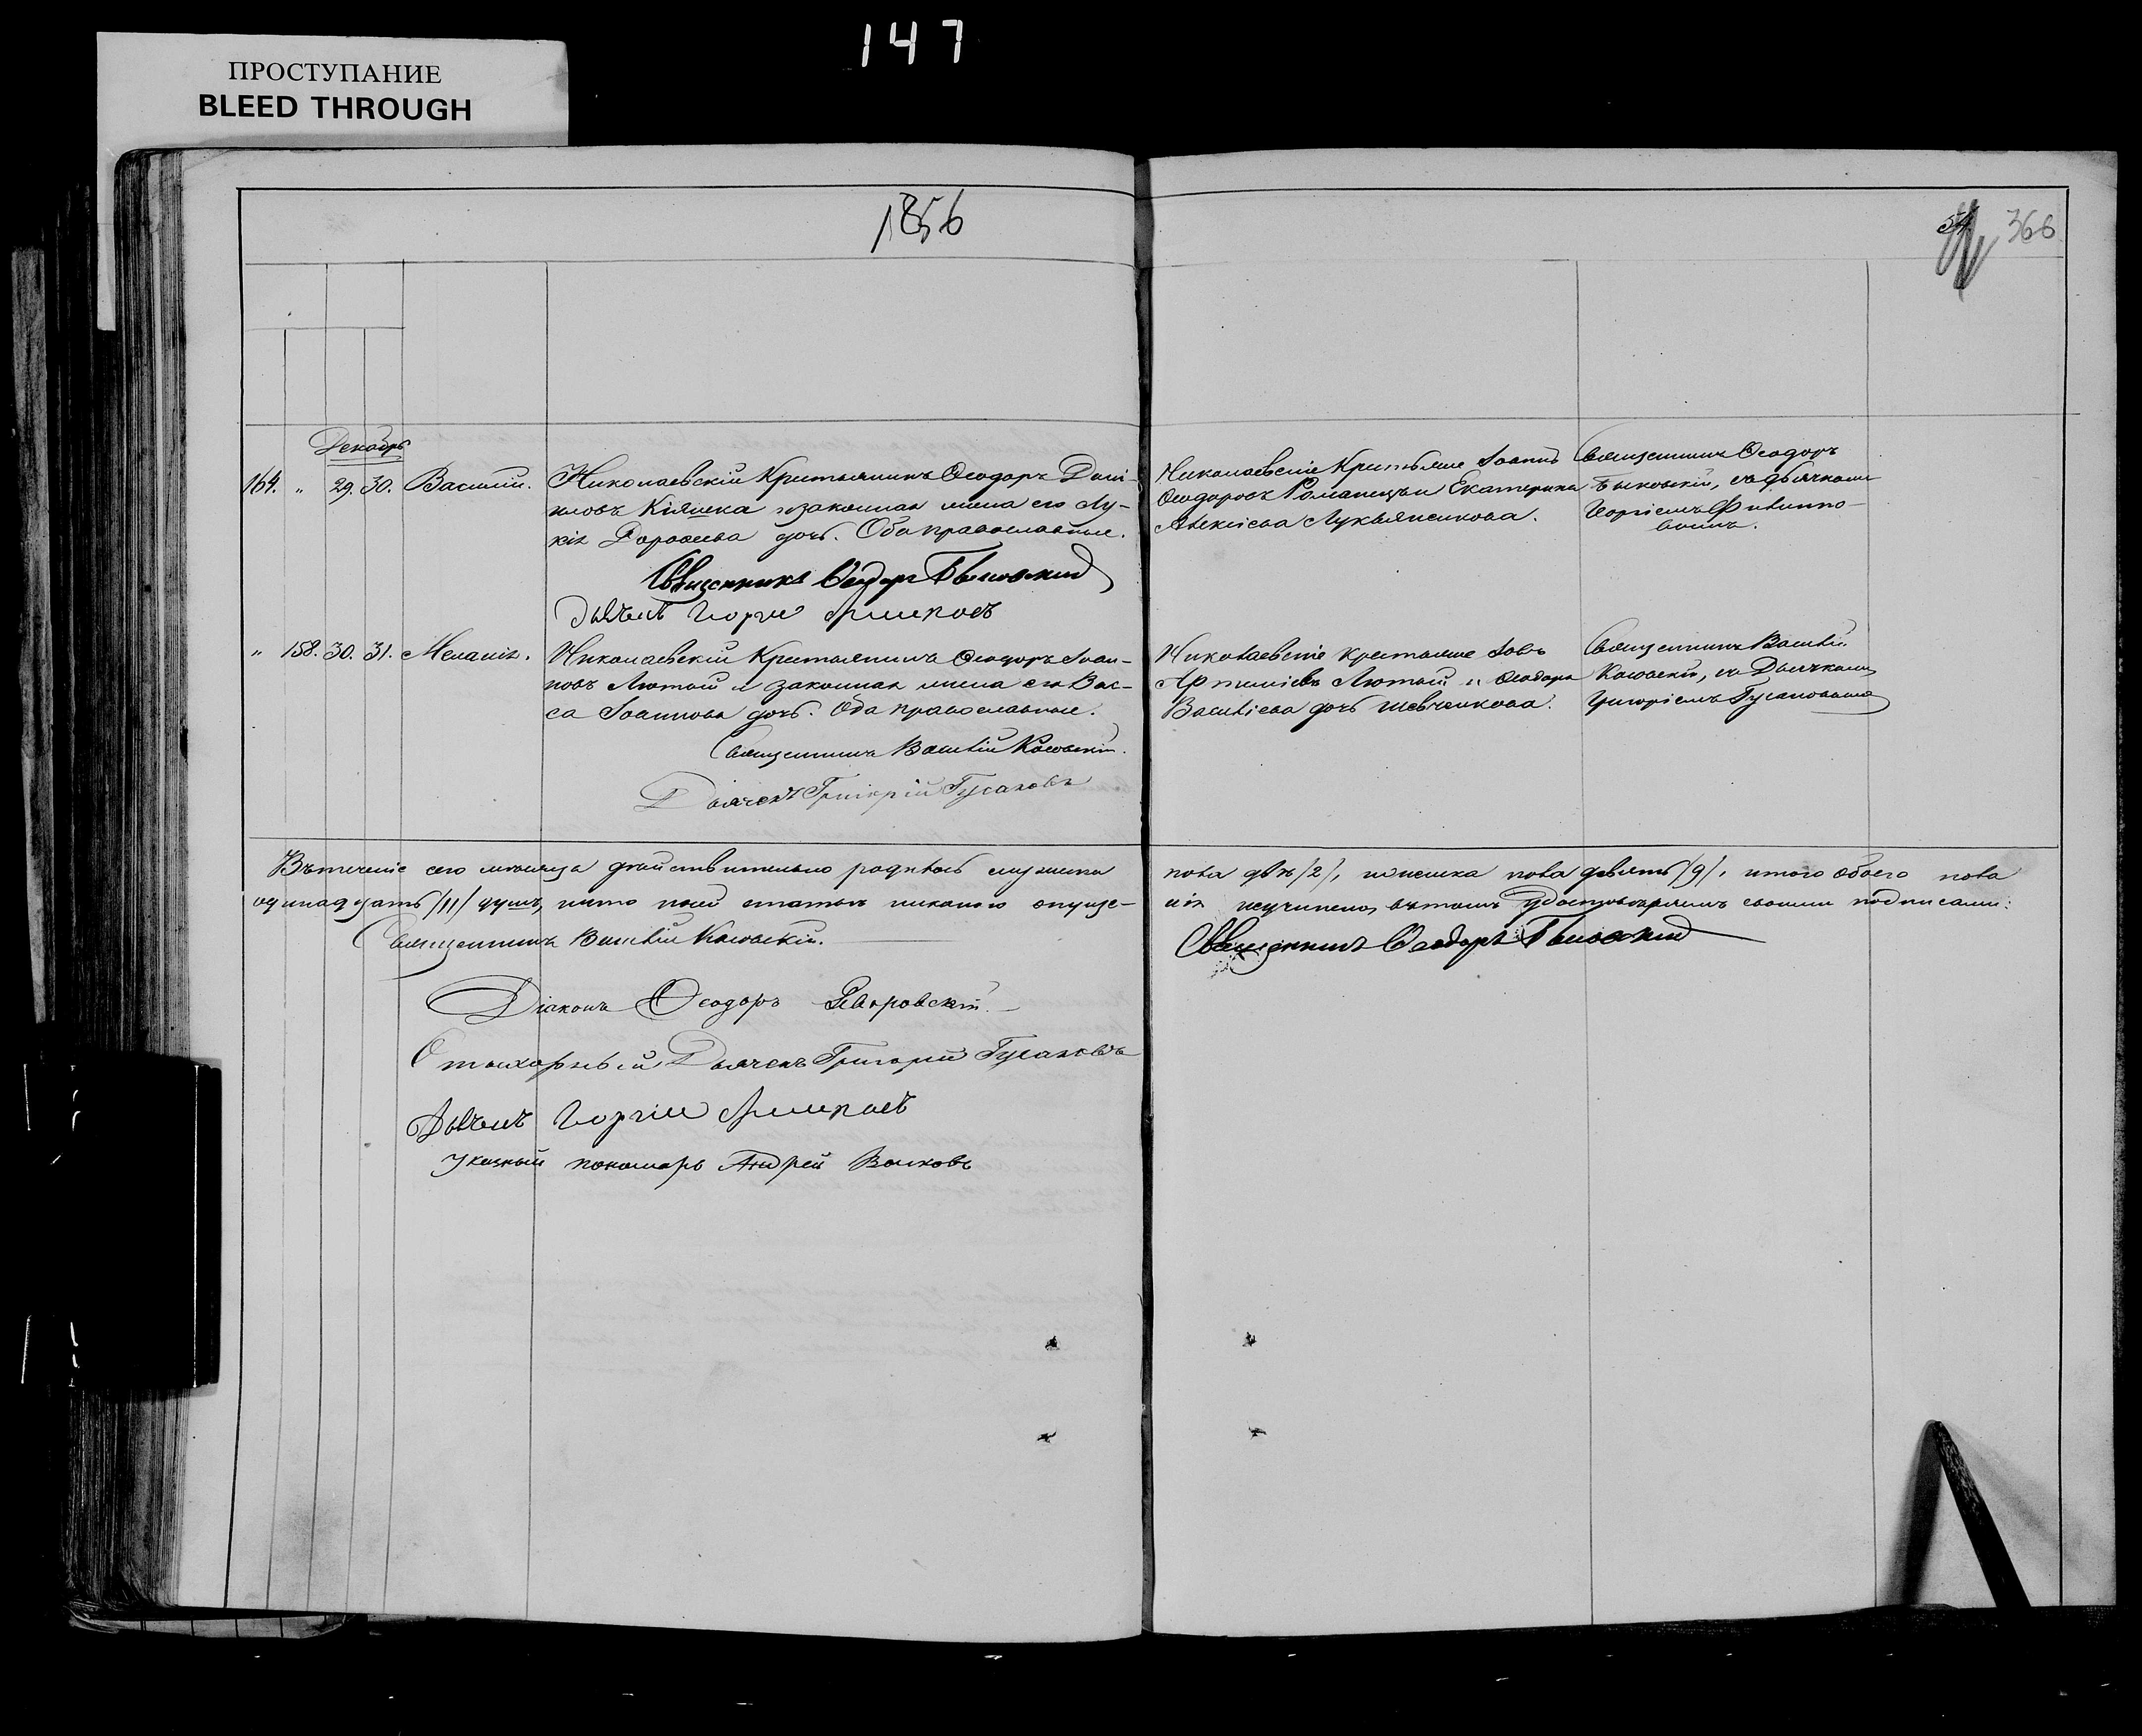 147
ПРОСТУПАНИЕ
BLEED THROUGH
1856
366
Декабрь
164. " 29. 30. Василій. Николаевскій Крестьянинъ Ѳеодоръ Дани-
иловъ Кіяшка и законная жена его Лу-
кія Дороѳеева дочь. Оба православные.
Священникъ Ѳеодоръ
Дьячекъ Георгій
Николаевскіе Крестьяне Іоаннъ
Ѳеодоровъ Романецъ и Екатерина
Алексіева Лукьянсикова.
Священникъ Ѳеодоръ
съ дьячкомъ
Георгіемъ Филиппо-
вымъ.
" 158. 30. 31. Меланія. Николаевскій Крестьянинъ Ѳеодоръ Іоан-
новъ Лютый и законная жена его Вас-
са Іоаннова дочь. Оба православные.
Священникъ Василій Косовскій.
Дьячекъ Григорій Гусаковъ
Николаевскіе крестьяне Іовъ
Артеміевъ Лютый и Ѳеодора
Василіева дочь Шевченкова.
Священникъ Василій
Косовскій, съ Дьячкомъ
Григоріемъ Гусаковымъ
Въ теченіе сего мѣсяца дѣйствительно родилось мужеска пола двѣ /2/, женска пола девять /9/, итого обоего пола
одинадцать /11/ душъ, и что ней статьи никакого опуще- нія неучинено, въ томъ удостовѣряемъ своими подписами:
Священникъ Василій Косовскій.
Священникъ Ѳеодоръ
Діаконъ Ѳеодоръ
Стихарный Дьячекъ Григорій Гусаковъ
Дьячекъ Георгій
Указный пономарь Андрей Волковъ